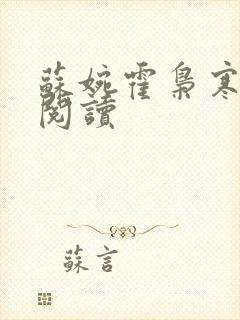 蘇婉霍梟寒
閱讀
蘇言